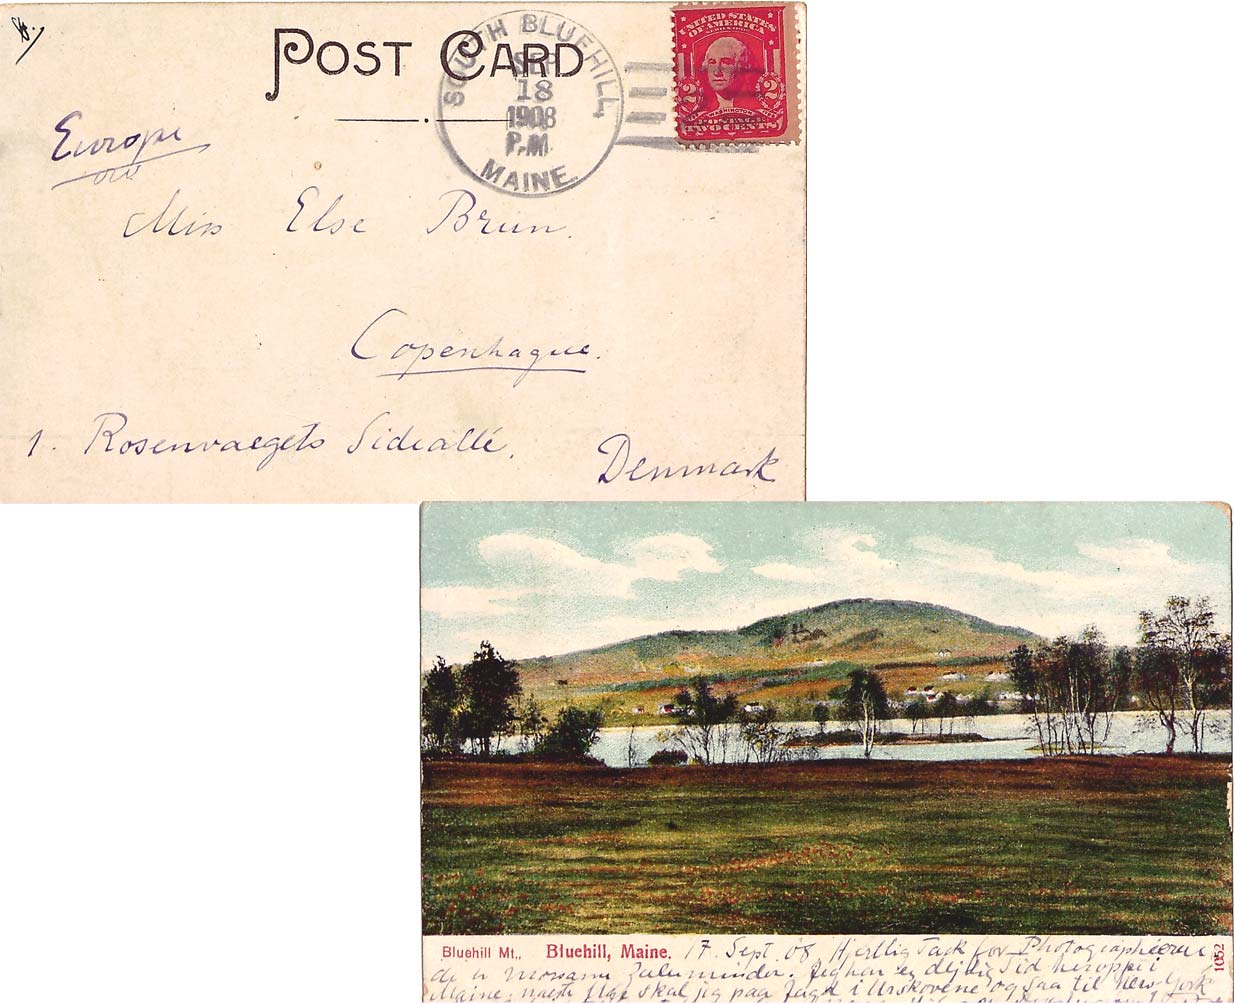 POST CARD
SOUTH BLUEHILL
SEP
18
1908
P.M.
MAINE.
UNITED STATES
OF AMERICA
SERIES 1902
2 2
WASHINGTON
POSTAGE
TWO CENTS
Europe
via
Miss Else Brun.
Copenhague.
1. Rosenvaegets Sideallé.
Denmark
Bluehill Mt., Bluehill, Maine. 17. Sept. 08. Hjertlig Tack for Photographierne
1052
de er morsomme Jeg har en dejlig Tid heroppe i
Maine; naeste Uge skal jeg paa Jagd i Urskovene og saa til New York